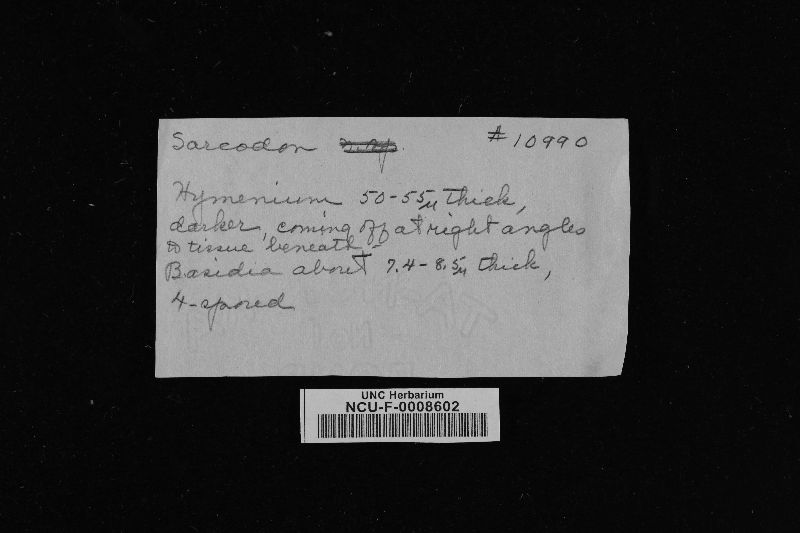 Sarcodon #10990
Hymenium 50-55µ thick,
darker, coming off at right angles
to tissue beneath -
Basidia about 7.4-8.5µ thick,
4-spored
UNC Herbarium
NCU-F-0008602